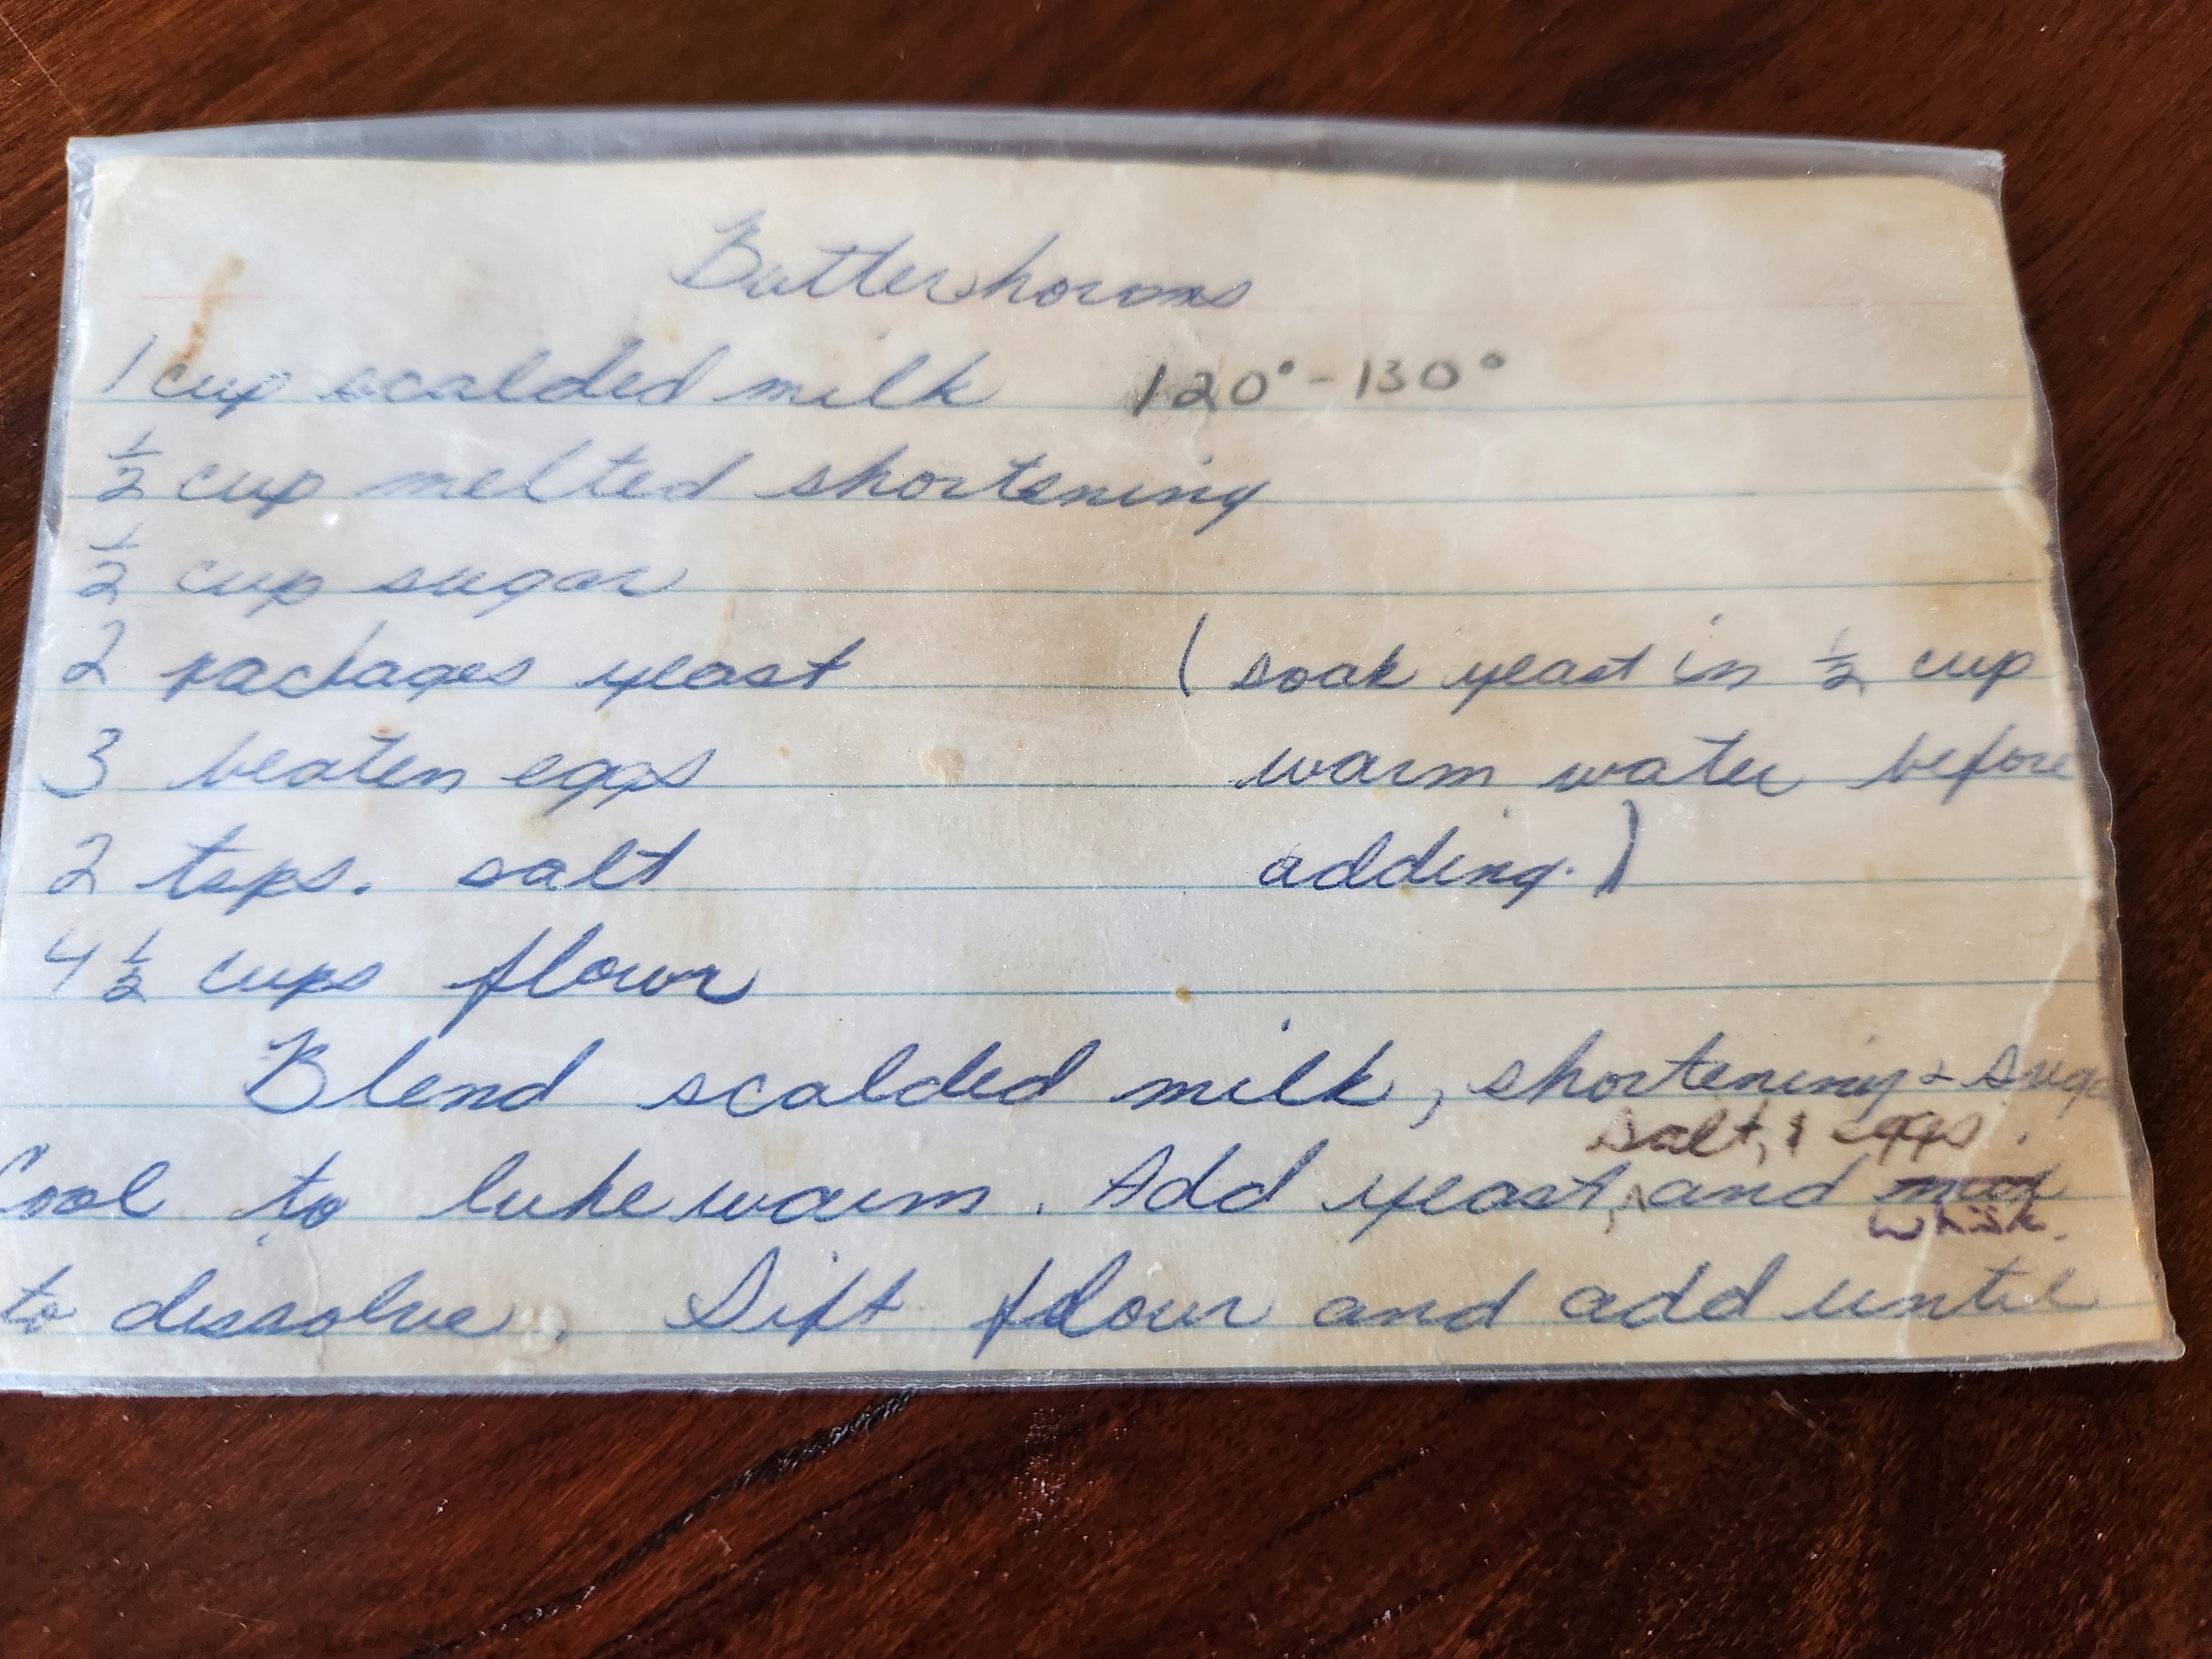 Butterhorns
1 cup scalded milk 120° - 130°
½ cup melted shortening
½ cup sugar
2 packages yeast ( soak yeast in ½ cup
3 beaten eggs warm water before
2 tsps. salt adding. )
4 ½ cups flour
Blend scalded milk, shortening & suga
salt, & eggs.
Cool to lukewarm. Add yeast, ^ and mix
whisk.
to dissolve. Sift flour and add until